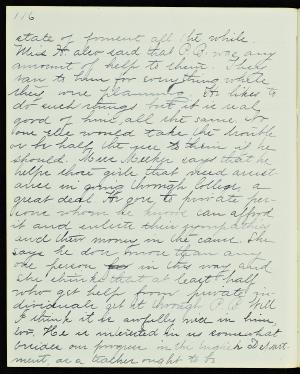 116
state of foment all the while.
Miss H. also said that C. B. was any
amount of help to them. They
ran to him for everything where
they were planning. He likes to
do such things but it is real
good of him, all the same. No
one else would take the trouble
or be half the use to them as he
should. Miss Meeker says that he
helps those girls that need assist-
ance in going through College, a
great deal. He goes to private per-
sons whom he knows can afford
it and enlists their sympathies
and their money in the cause. She
says he does more than any
one person in this way and
she thinks that at least half
who get help from private in-
dividuals get it through C. B. Well
I think it is awfully nice in him,
too. He is interested in us somewhat
besides our progress in the English Depart-
ment, as a teacher ought to be